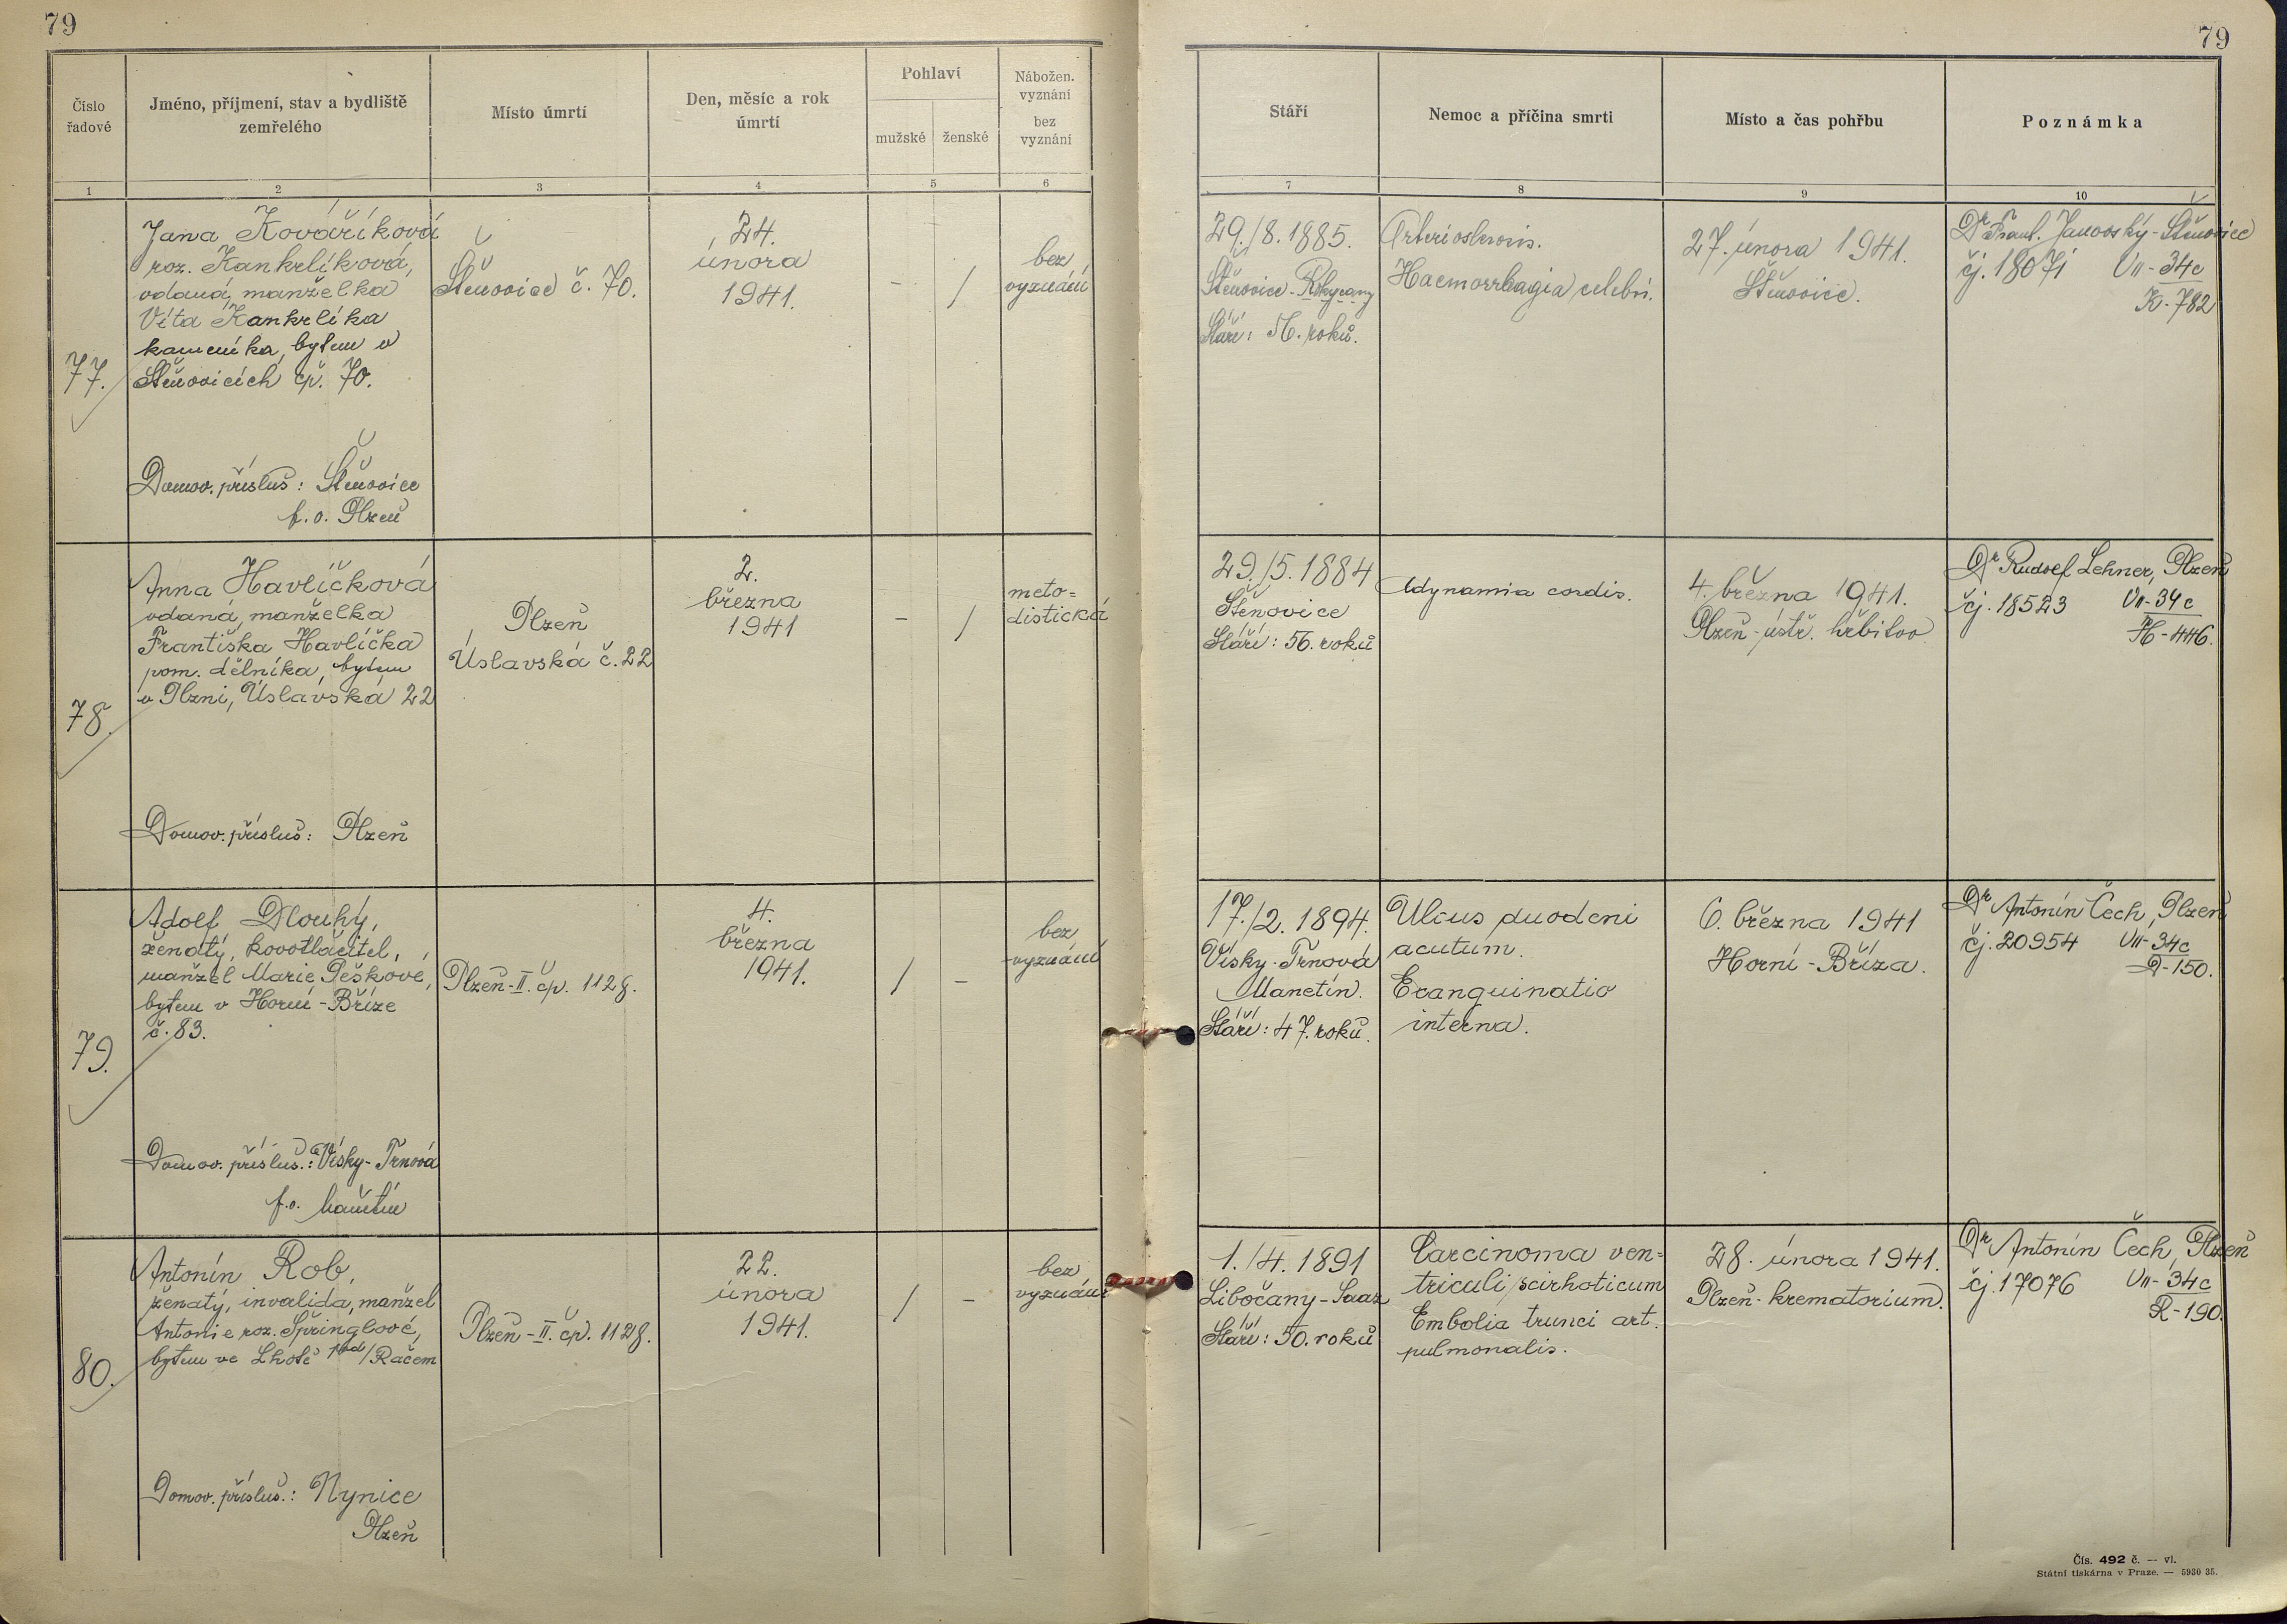 79
79
Číslo
řadové
Jméno, příjmení, stav a bydliště
zemřelého
Místo úmrtí
Den, měsíc a rok
úmrtí
Pohlaví
mužské
ženské
Nábožen.
vyznání
bez
vyznání
Stáří
Nemoc a příčina smrti
Místo a čas pohřbu
Poznámka
1
2
3
4
5
6
7
8
9
10
77.
Jana Kováříková
roz. Kankrlíková,
vdaná, manželka
Víta Kankrlíka
kameníka, bytem v
Štěnovicích čp. 70.
Domov. přísluš: Štěnovice
f. o. Plzeň
Štěnovice č. 70.
24.
února
1941.
-
/
bez
vyznání
29./8. 1885.
Štěnovice - Rokycany
Stáří: 56. roků.
Arteriosklerosis.
Haemorrhagia celebri.
27. února 1941.
Štěnovice.
Dr Frant. Janovský - Štěnovice
čj. 18071 VII-34c
K-782
78.
Anna Havlíčková
vdaná, manželka
Františka Havlíčka
pom. dělníka, bytem
v Plzni, Úslavská 22
Domov. přísluš: Plzeň
Plzeň
Úslavská č. 22
2.
března
1941
-
/
meto=
distická
29./5. 1884
Štěnovice
Stáří: 56. roků
Adynamia cordis.
4. března 1941.
Plzeň - ústř. hřbitov.
Dr Rudolf Lehner, Plzeň
čj. 18523 VII-34c
H-446.
79.
Adolf Dlouhý,
ženatý, kovotlačitel,
manžel Marie Peškové,
bytem v Horní-Bříze
č. 83.
Domov. přísluš.: Vísky-Trnová
f.o. Manětín
Plzeň-II. čp. 1128.
4.
března
1941.
/
-
bez
vyznání
17./2. 1894.
Vísky-Trnová
Manetín.
Stáří: 47. roků.
Ulcus duodeni
acutum.
Exanguinatio
interna.
6. března 1941
Horní-Bříza.
Dr Antonín Čech, Plzeň
čj. 20954 VII-34c
D-150.
80.
Antonín Rob,
ženatý, invalida, manžel
Antonie roz. Špringlové,
bytem ve Lhotě pod/Račem
Domov. přísluš.: Nynice
Plzeň
Plzeň-II. čp. 1128.
22.
února
1941.
/
-
bez
vyznání
1./4. 1891
Libočany-Saaz
Stáří: 50. roků
Carcinoma ven=
triculi scirhoticum
Embolia trunci art.
pulmonalis.
28. února 1941.
Plzeň-krematorium.
Dr Antonín Čech, Plzeň
čj. 17076 VII-34c
R-190.
Čís. 492 č. — vl.
Státní tiskárna v Praze. — 5930 35.